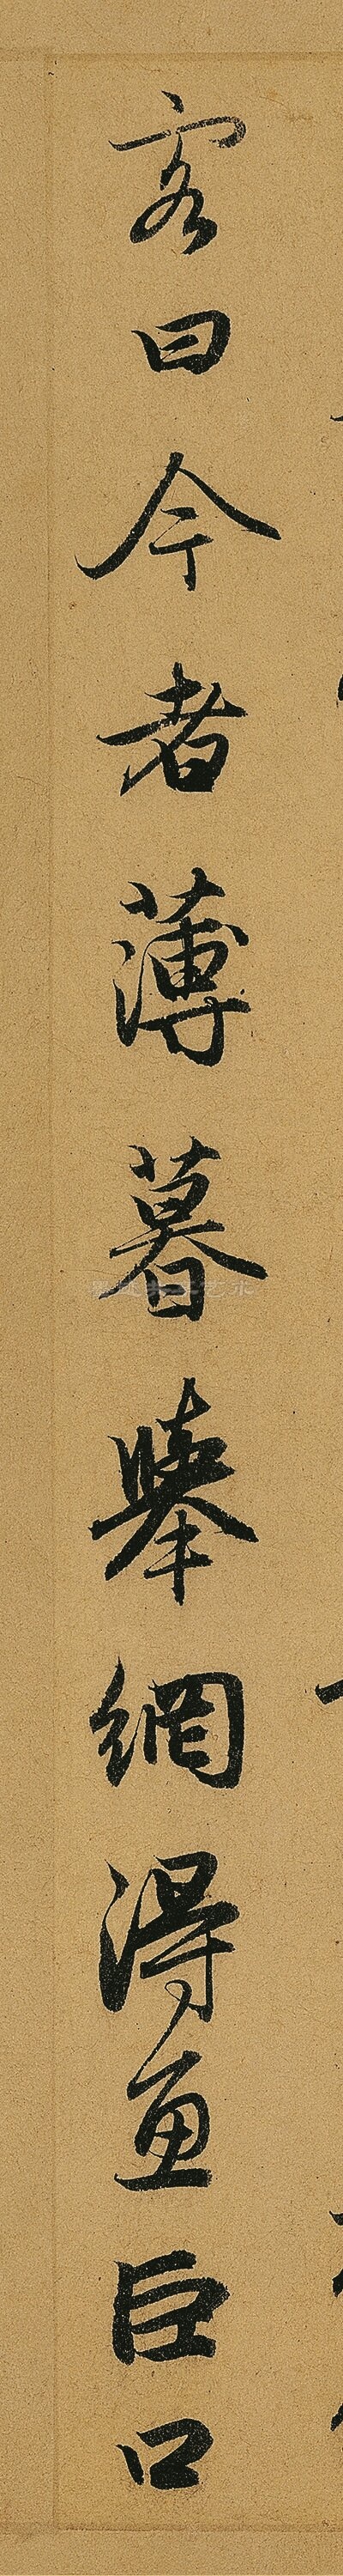 客曰今者薄暮舉網得魚巨口